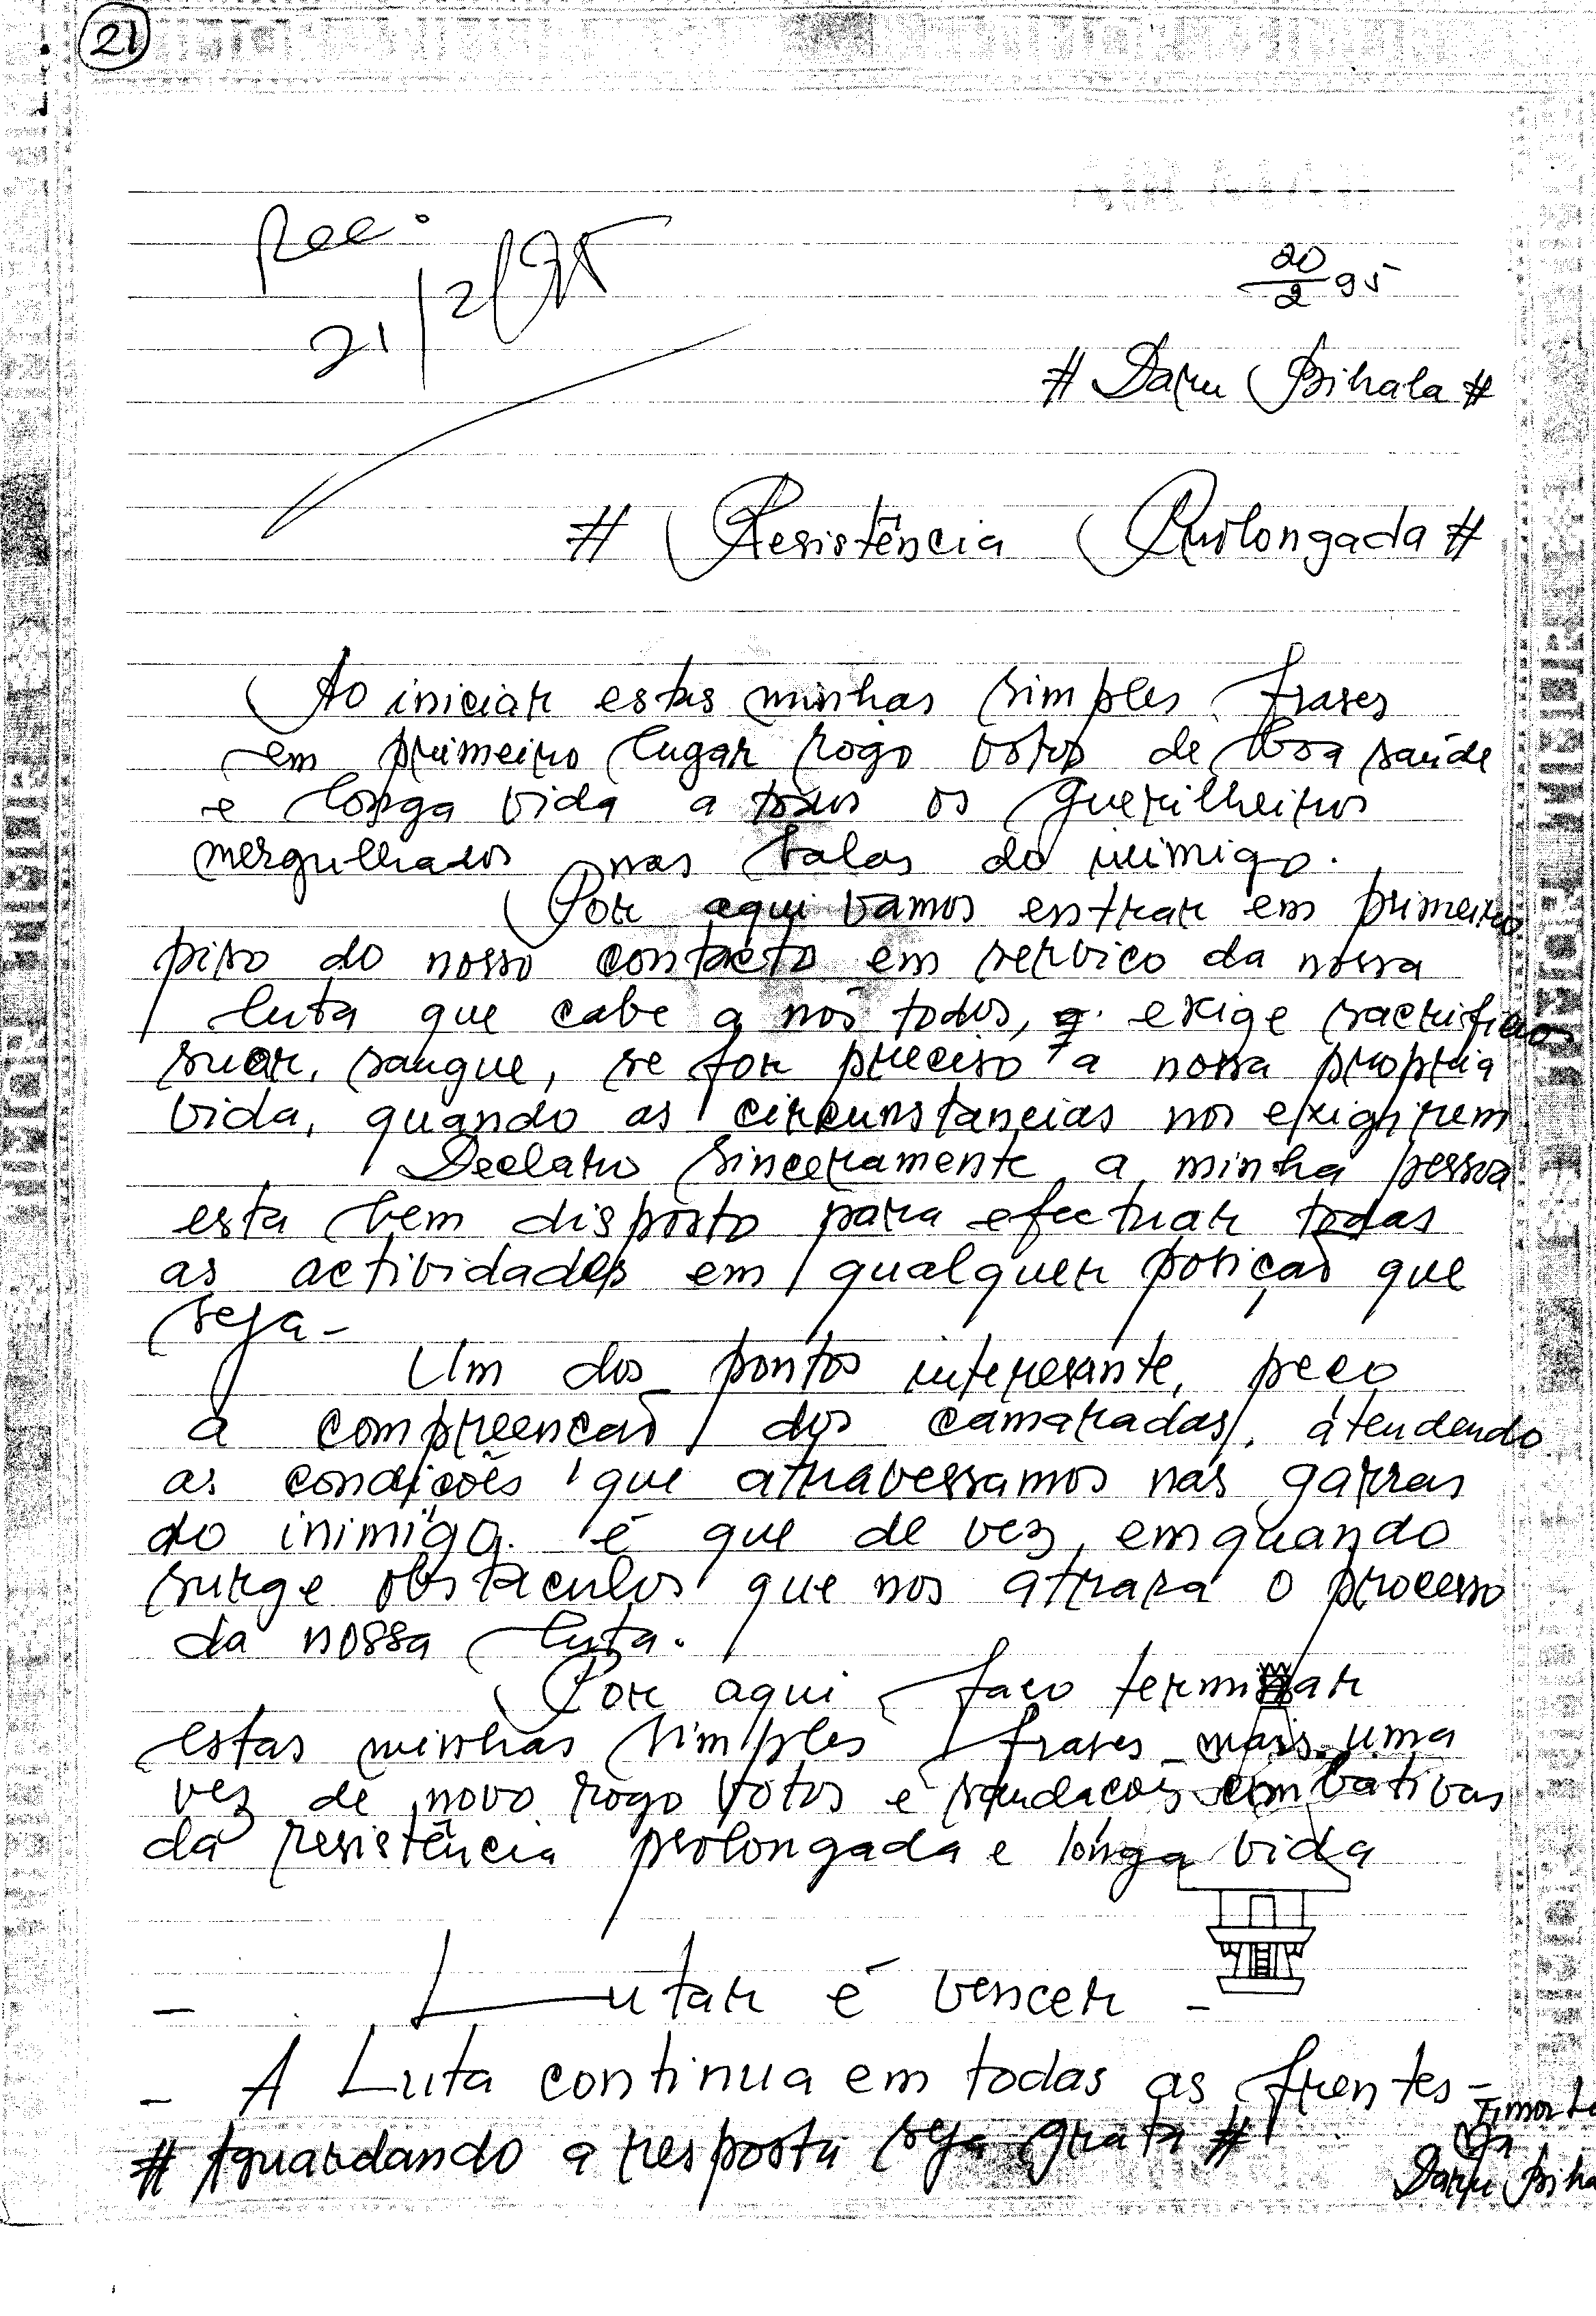 21
Rec:
21/2/95
20/2 95
# Daru Bihala #
# Resistência Prolongada #
Ao iniciar estas minhas simples frases
em primeiro lugar rogo votos de boa saúde
e longa vida a todos os guerilheiros
mergulhados nas balas do inimigo.
Por aqui vamos entrar em primeiro
piso do nosso contacto em serviço da nossa
luta que cabe a nós todos, q. exige sacrificios
suor, sangue, se for preciso a nossa propria
vida, quando as circunstancias nos exigirem
Declaro sinceramente a minha pessoa
esta bem disposto para efectuar todas
as actividades em qualquer posição que
seja-
Um dos pontos interesante, peço
a compreencão dos camaradas, atendendo
as condições que atravessamos nas garras
do inimigo. é que de vez, emquando
surge obstaculos que nos atraza o processo
da nossa luta.
Por aqui faco terminar
estas minhas simples frases mais uma
vez de novo rogo votos e saudacoes combativas
da resistência prolongada e longa vida
- Lutar é vencer -
- A Luta continua em todas as frentes -
# Aguardando a resposta seja grata #
Timor
Daru Biha